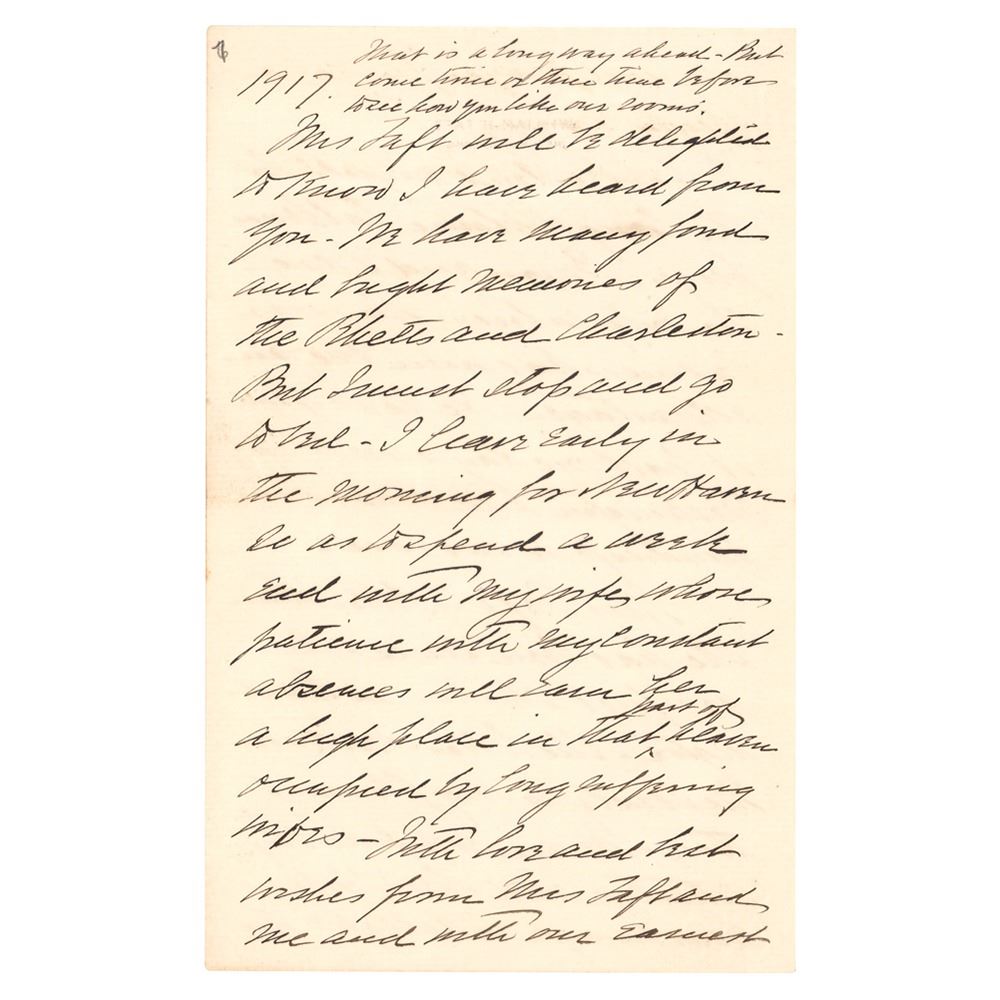 6
That is a long way ahead - But
1917. come twice or three times before
to see how you like our rooms.
Mrs Taft will be delighted
to know I have heard from
you - We have many fond
and bright memories of
the Rhetts and Charleston -
But I must stop and go
to bed - I leave early in
the morning for New Haven
so as to spend a week
end with my wife, whose
patience with my constant
absences will earn her
a high place in that ^ part of heaven
occupied by long suffering
wives - With love and best
wishes from Mrs Taft and
me and with our earnest